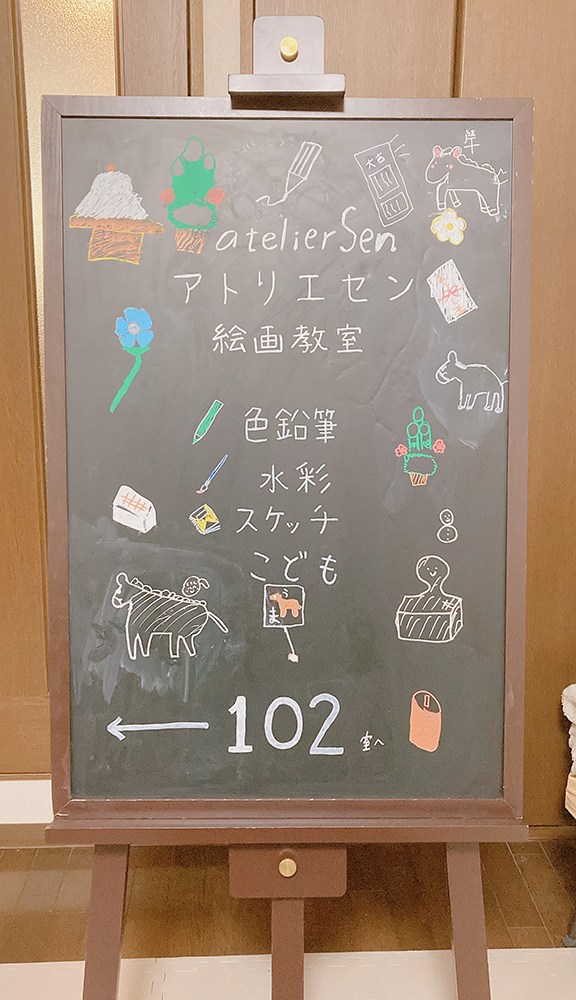 大吉
atelierSen
アトリエセン
絵画教室
色鉛筆
水彩
スケッチ
こども
うま
102 室へ